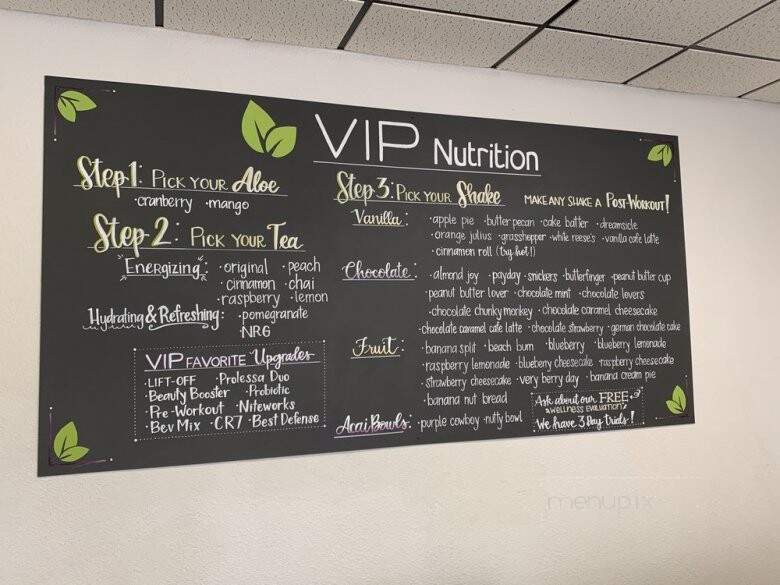 VIP Nutrition
Step 1: PICK YOUR Aloe
·cranberry ·mango
Step 2: PICK YOUR Tea
Energizing: ·original ·peach
·cinnamon ·chai
·raspberry ·lemon
Hydrating & Refreshing: ·pomegranate
·NRG
VIP FAVORITE Upgrades
·LIFT-OFF ·Prolessa Duo
·Beauty Booster ·Probiotic
·Pre-Workout ·Niteworks
·Bev Mix ·CR7 ·Best Defense
Step 3: PICK YOUR Shake MAKE ANY SHAKE A POST-WORKOUT!
Vanilla: ·apple pie ·butter pecan ·cake batter ·dreamsicle
·orange julius ·grasshopper ·white reese's ·vanilla cafe latte
·cinnamon roll (try hot!)
Chocolate: ·almond joy ·payday ·snickers ·butterfinger ·peanut butter cup
·peanut butter lover ·chocolate mint ·chocolate lovers
·chocolate chunky monkey ·chocolate caramel cheesecake
·chocolate caramel cafe latte ·chocolate strawberry ·german chocolate cake
Fruit: ·banana split ·beach bum ·blueberry ·blueberry lemonade
·raspberry lemonade ·blueberry cheesecake ·raspberry cheesecake
·strawberry cheesecake ·very berry day ·banana cream pie
·banana nut bread
Acai Bowls: ·purple cowboy ·nutty bowl
Ask about our FREE
WELLNESS EVALUATION
We have 3 Day Trials!
menupix